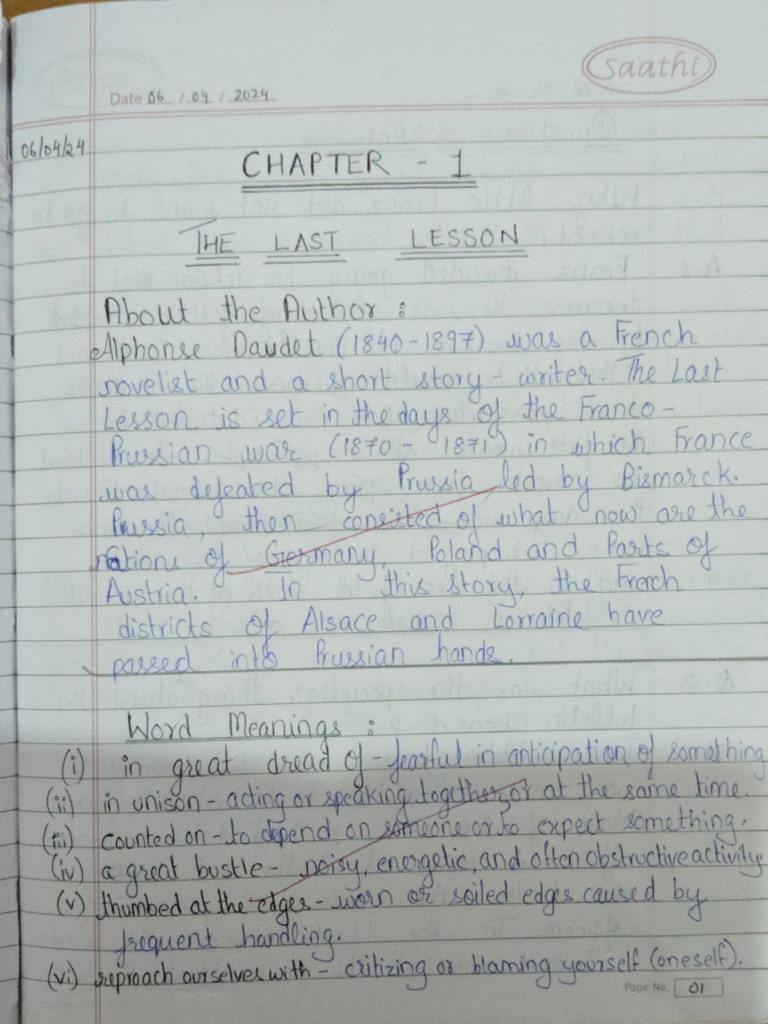 saathi
Date 06 / 04 / 2024
06/04/24
CHAPTER - 1
THE LAST LESSON
About the Author :
Alphonse Daudet (1840-1897) was a French
novelist and a short story-writer. The Last
Lesson is set in the days of the Franco-
Prussian war (1870 - 1871) in which France
was defeated by Prussia led by Bismarck.
Prussia, then consisted of what now are the
nations of Germany, Poland and Parts of
Austria. In this story, the French
districts of Alsace and Lorraine have
passed into Prussian hands.
Word Meanings :
(i) in great dread of - fearful in anticipation of something
(ii) in unison - acting or speaking together, or at the same time.
(iii) counted on - to depend on someone or to expect something.
(iv) a great bustle - noisy, energetic, and often obstructive activity.
(v) thumbed at the edges - worn or soiled edges caused by
frequent handling.
(vi) reproach ourselves with - critizing or blaming yourself (oneself).
Page No. 01